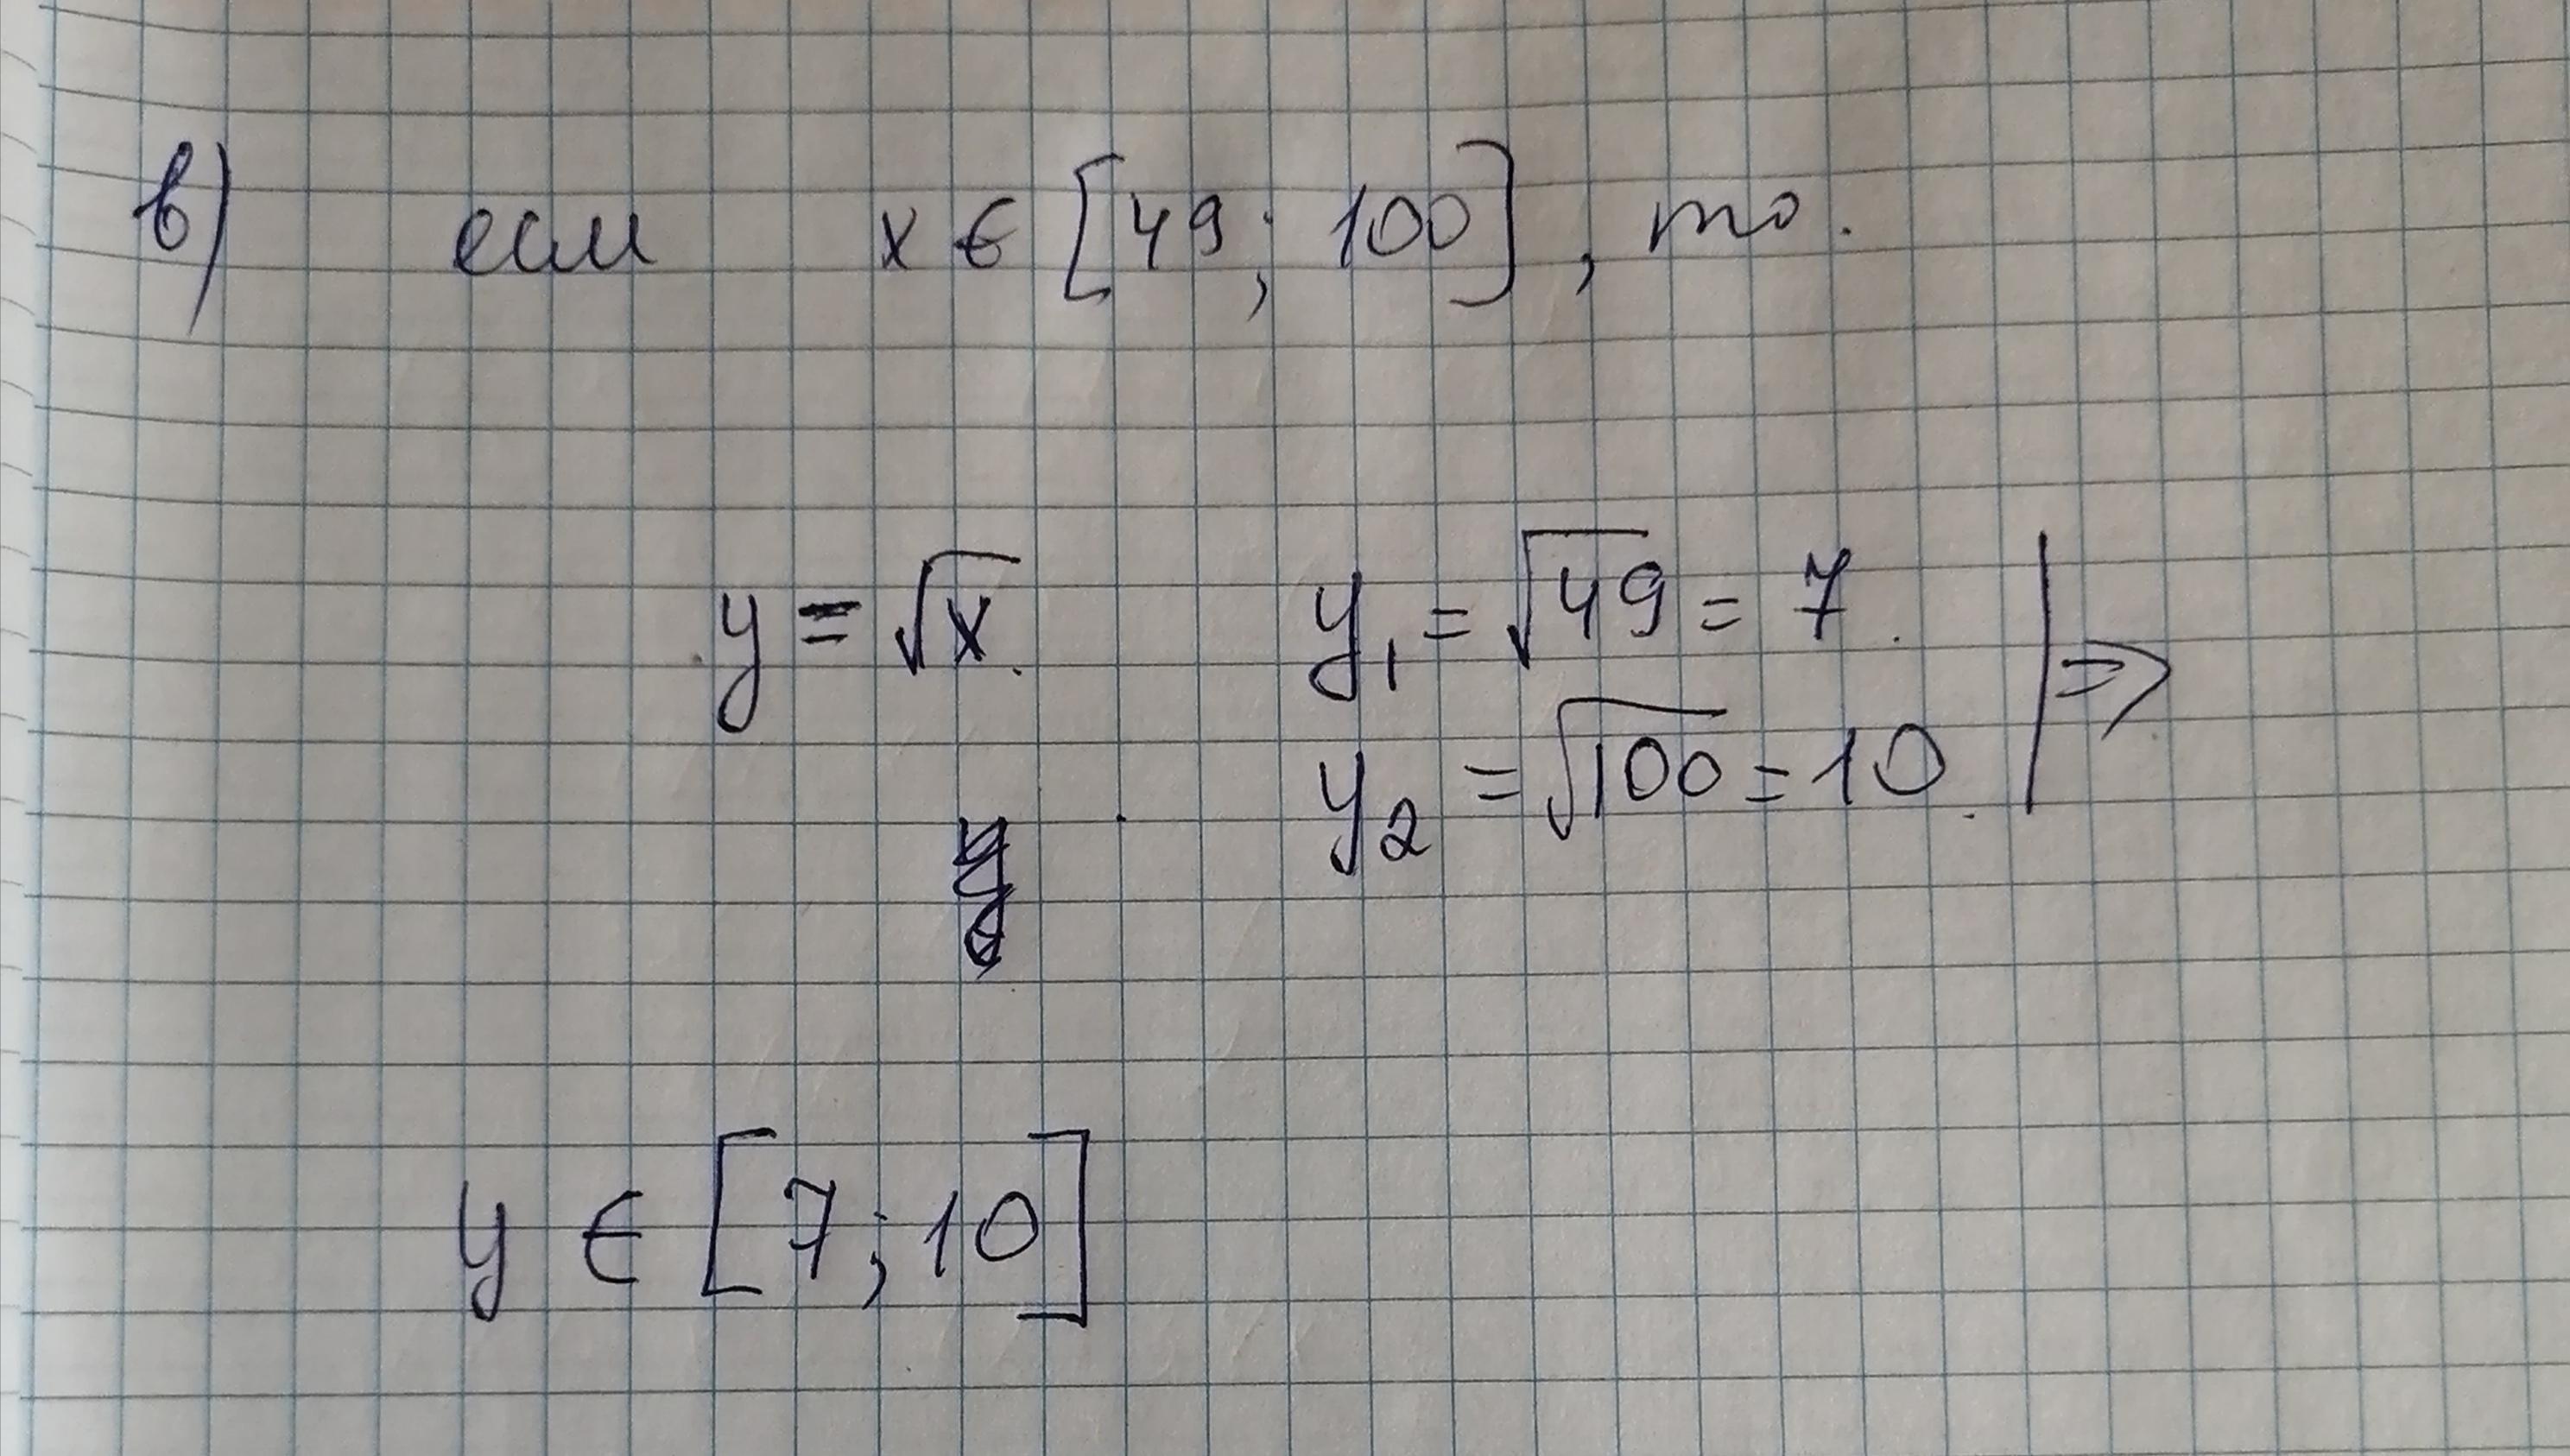 в) если x ∈ [49; 100], то.
y = √x. y₁ = √49 = 7. | ⇒
y₂ = √100 = 10.
y ∈ [7; 10]